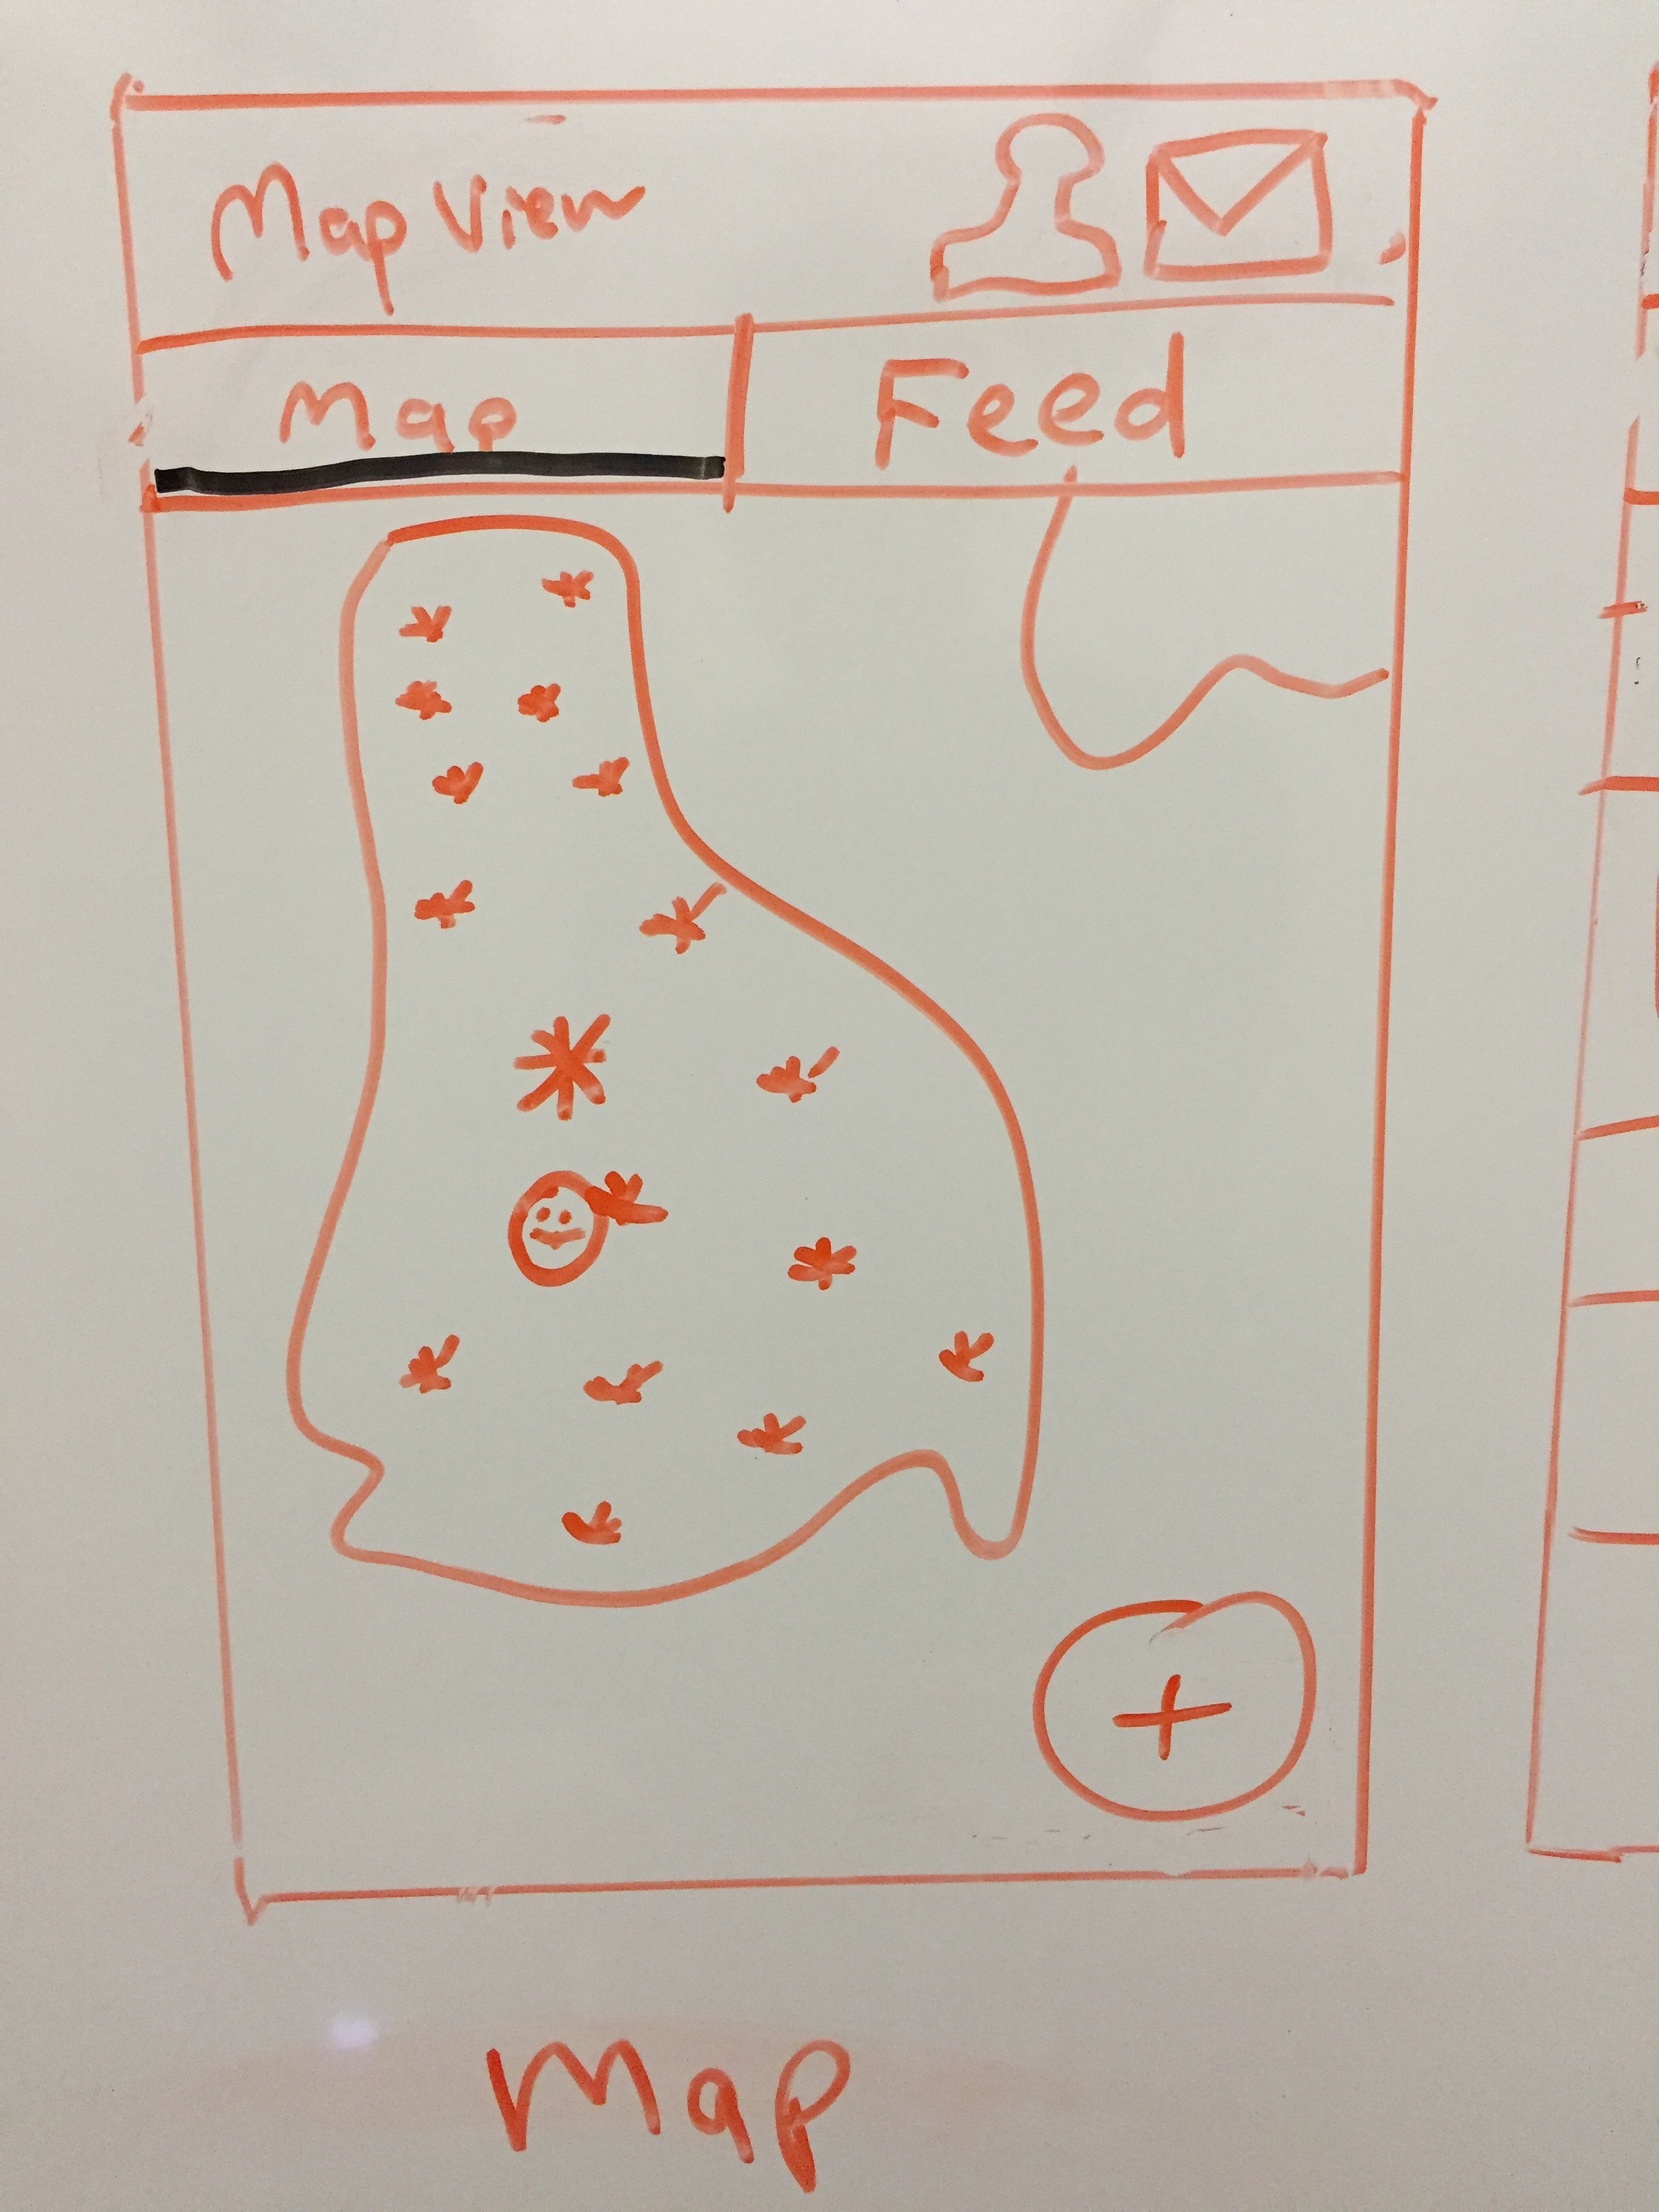 Map View
Map
Feed
+
Map